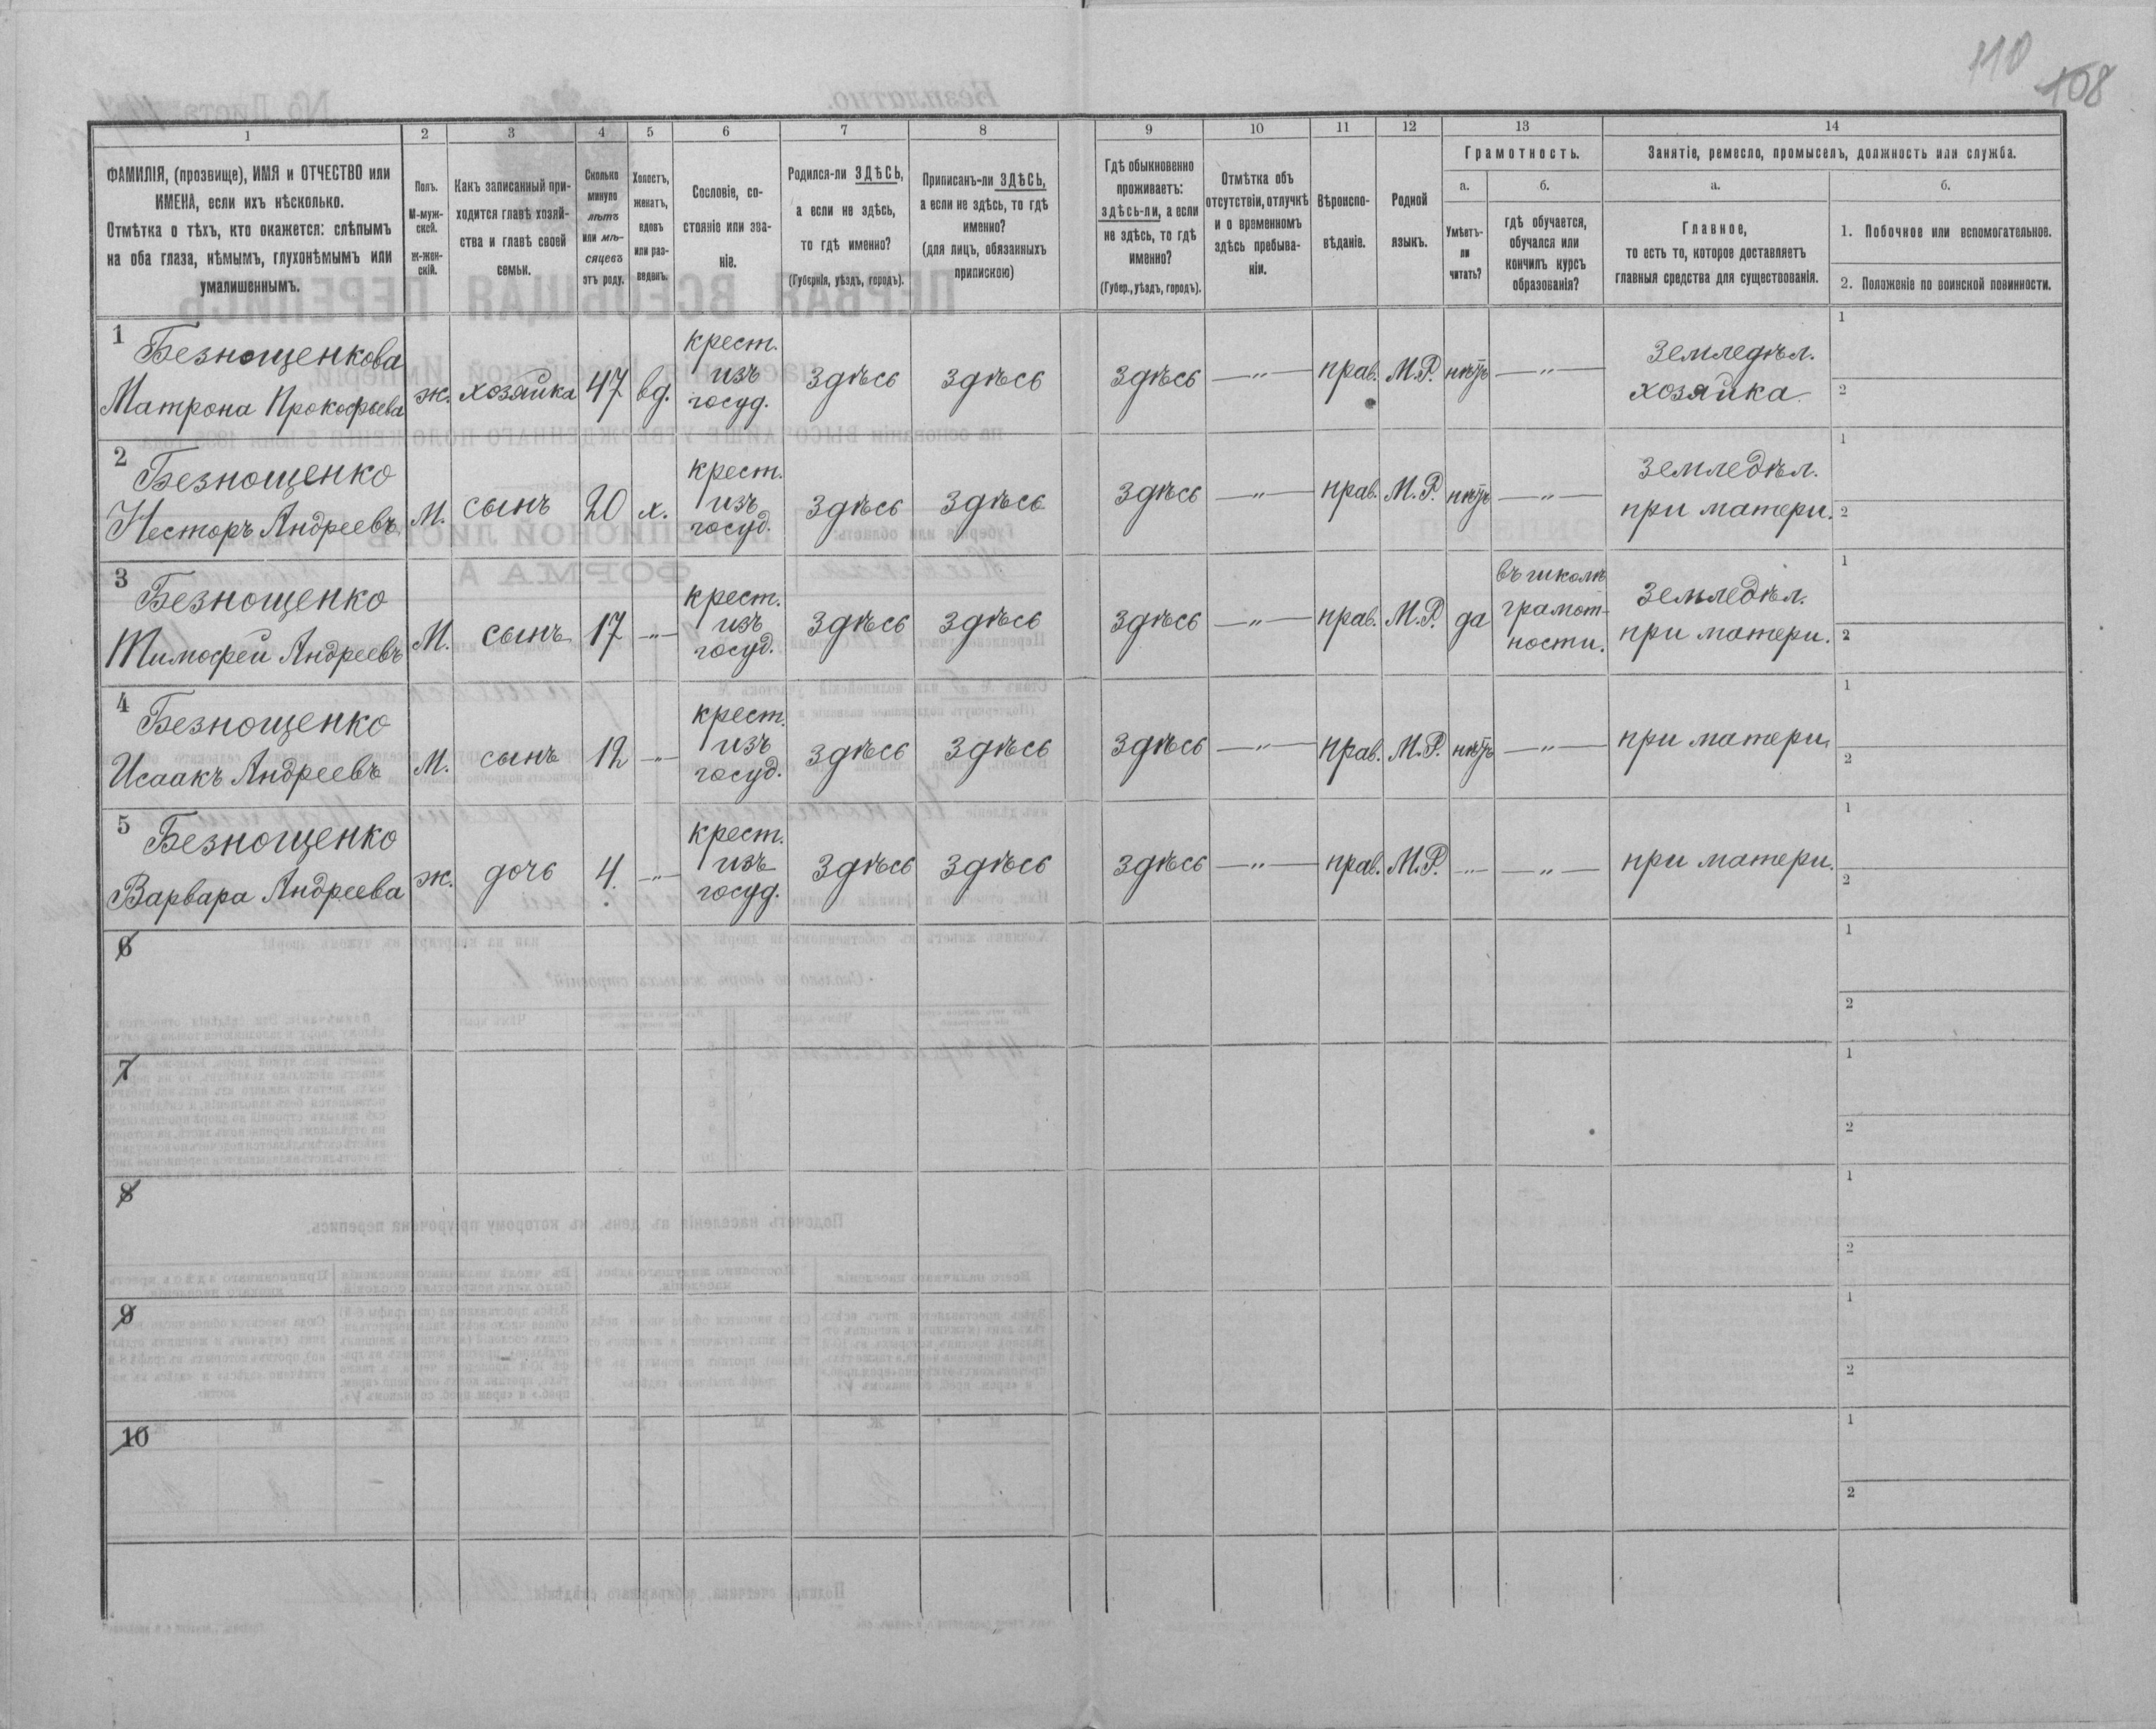 110
108
1
2
3
4
5
6
7
8
9
10
11
12
13
14
ФАМИЛІЯ, (прозвище), ИМЯ и ОТЧЕСТВО или
ИМЕНА, если ихъ нѣсколько.
Отмѣтка о тѣхъ, кто окажется: слѣпымъ
на оба глаза, нѣмымъ, глухонѣмымъ или
умалишеннымъ.
Полъ.
М-муж-
ской.
Ж-жен-
скій.
Какъ записанный при-
ходится главѣ хозяй-
ства и главѣ своей
семьи.
Сколько
минуло
лѣтъ
или мѣ-
сяцевъ
отъ роду.
Холостъ,
женатъ,
вдовъ
или раз-
веденъ.
Сословіе, со-
стояніе или зва-
ніе.
Родился-ли ЗДѢСЬ,
а если не здѣсь,
то гдѣ именно?
(Губернія, уѣздъ, городъ).
Приписанъ-ли ЗДѢСЬ,
а если не здѣсь, то гдѣ
именно?
(для лицъ, обязанныхъ
припискою)
Гдѣ обыкновенно
проживаетъ:
здѣсь-ли, а если
не здѣсь, то гдѣ
именно?
(Губер., уѣздъ, городъ).
Отмѣтка объ
отсутствіи, отлучкѣ
и о временномъ
здѣсь пребыва-
ніи.
Вѣроиспо-
вѣданіе.
Родной
языкъ.
Грамотность.
а.
б.
Умѣетъ-
ли
читать?
гдѣ обучается,
обучался или
кончилъ курсъ
образованія?
Занятіе, ремесло, промыселъ, должность или служба.
а.
б.
Главное,
то есть то, которое доставляетъ
главныя средства для существованія.
1. Побочное или вспомогательное.
2. Положеніе по воинской повинности.
1
Безнощенкова
Матрона Прокофьева
ж.
хозяйка
47
вд.
крест.
изъ
госуд.
Здѣсь
Здѣсь
Здѣсь
—"—
прав.
М.Р.
нѣтъ
—"—
Земледѣл.
хозяйка
1
2
2
Безнощенко
Несторъ Андреевъ
М.
сынъ
20
х.
крест.
изъ
госуд.
Здѣсь
Здѣсь
Здѣсь
—"—
прав.
М.Р.
нѣтъ
—"—
Земледѣл.
при матери.
1
2
3
Безнощенко
Тимофей Андреевъ
М.
сынъ
17
—"—
крест.
изъ
госуд.
Здѣсь
Здѣсь
Здѣсь
—"—
прав.
М.Р.
да
въ школѣ
грамот-
ности.
Земледѣл.
при матери.
1
2
4
Безнощенко
Исаакъ Андреевъ
М.
сынъ
12
—"—
крест.
изъ
госуд.
Здѣсь
Здѣсь
Здѣсь
—"—
прав.
М.Р.
нѣтъ
—"—
при матери.
1
2
5
Безнощенко
Варвара Андреева
ж.
дочь
4.
—"—
крест.
изъ
госуд.
Здѣсь
Здѣсь
Здѣсь
—"—
прав.
М.Р.
—"—
—"—
при матери.
1
2
6
1
2
7
1
2
8
1
2
9
1
2
10
1
2